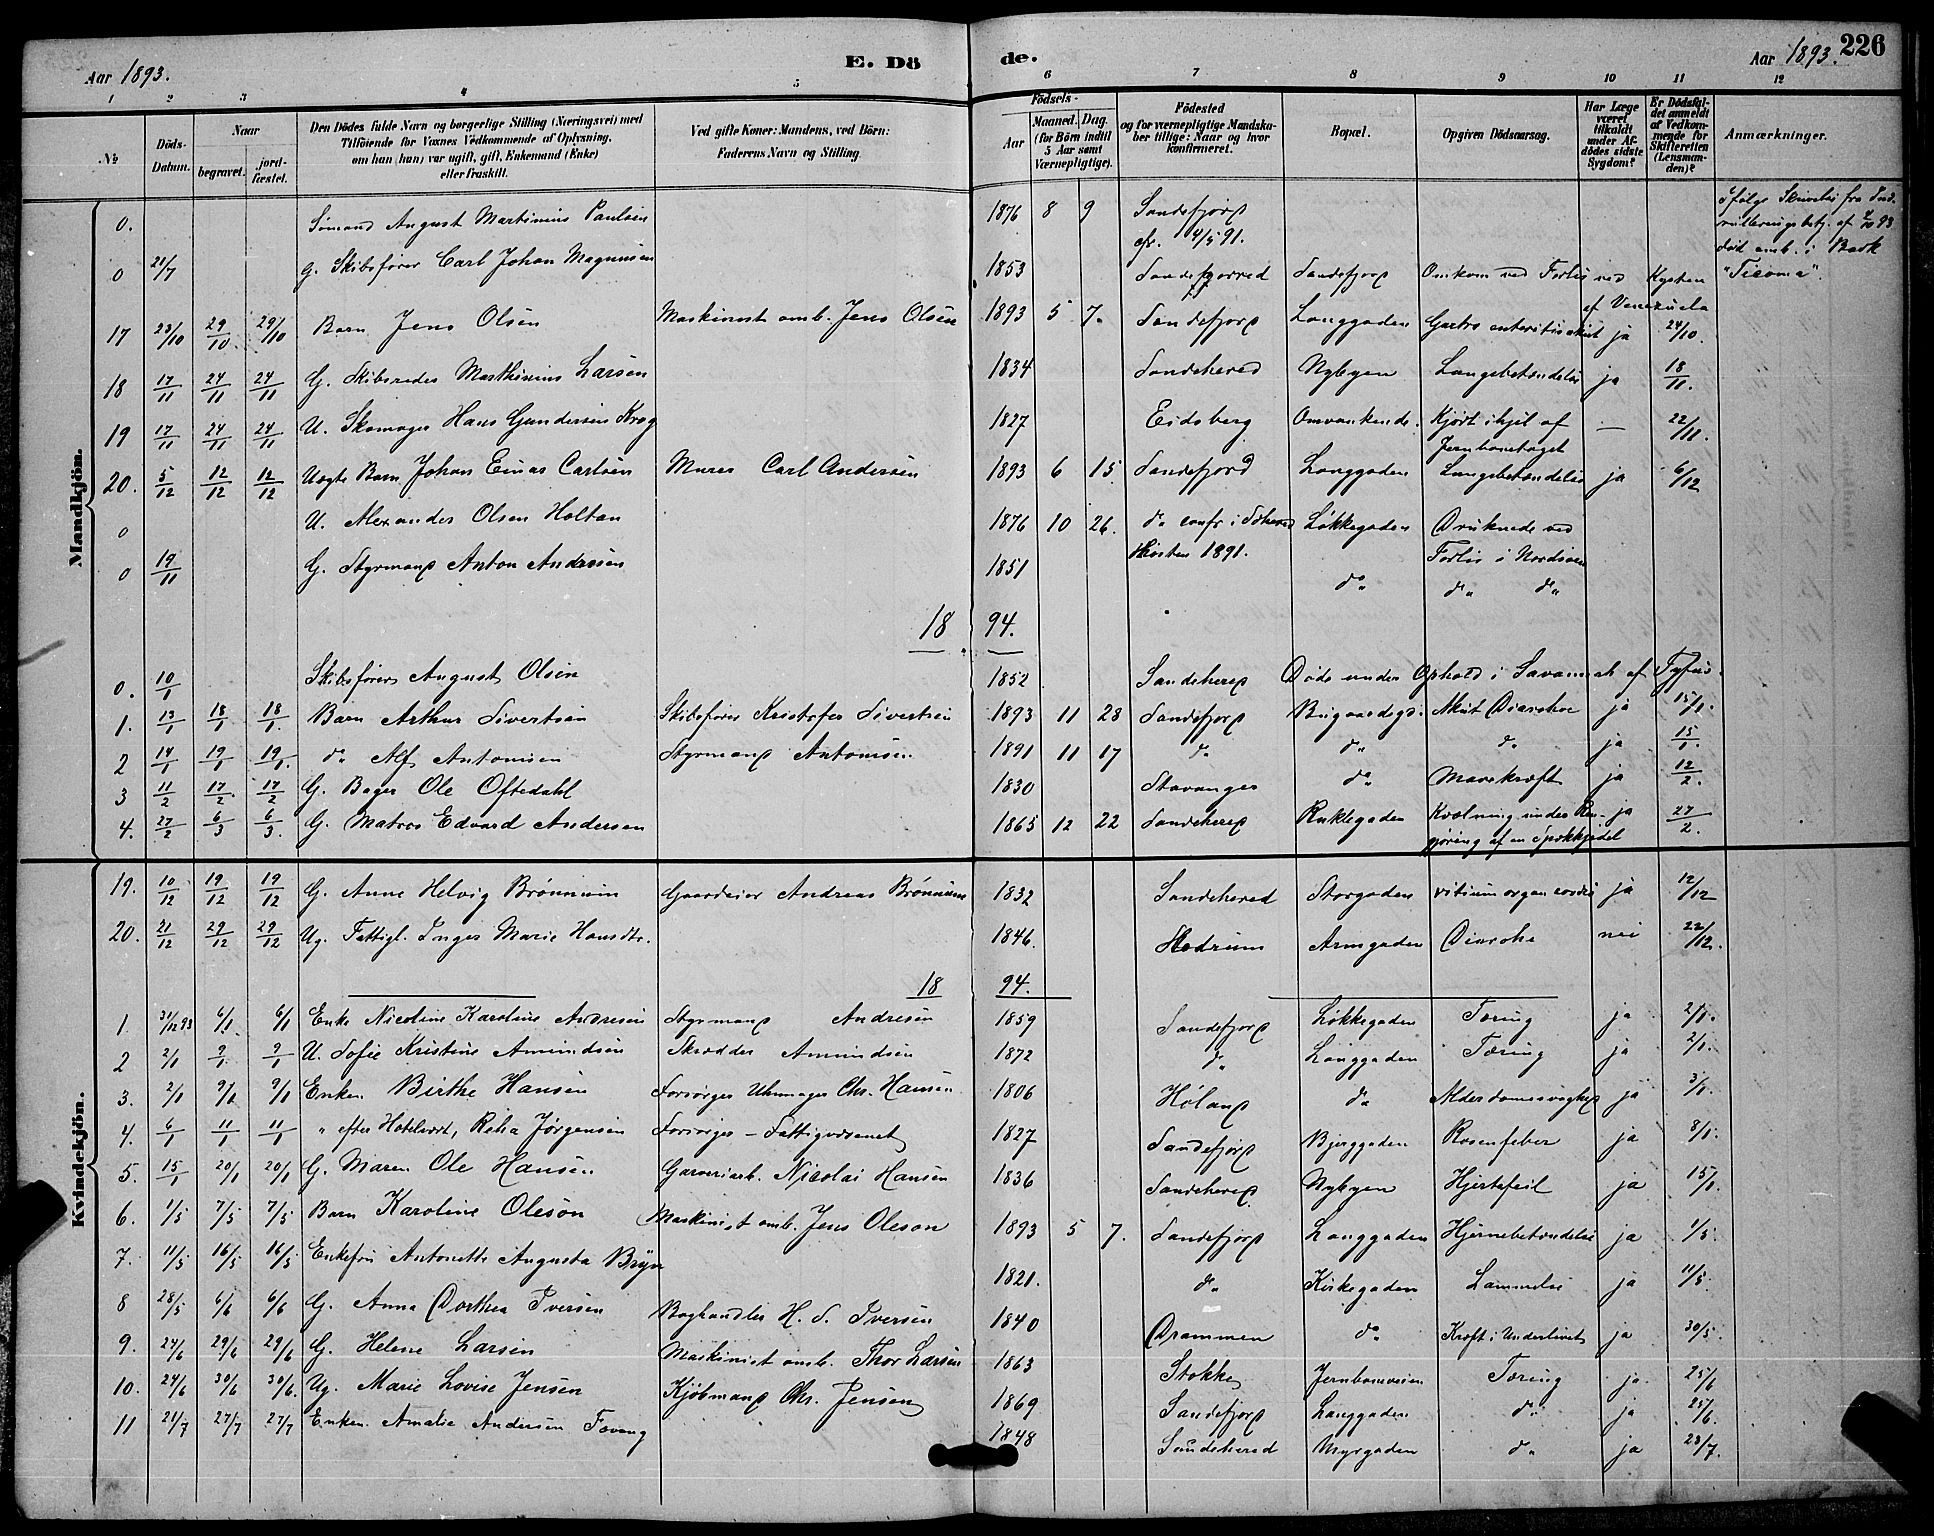 Aar 1893. E. Dö de. Aar 1893. 226
1 2 3 4 5 6 7 8 9 10 11 12
№ Döds-Datum. Naar begravet. jord-fæstet. Den Dödes fulde Navn og borgerlige Stilling (Næringsvei) med Tilföiende for Voxnes Vedkommende af Oplysning, om han (hun) var ugift, gift, Enkemand (Enke) eller fraskilt. Ved gifte Koner: Mandens, ved Börn: Faderens Navn og Stilling. Födsels- Aar Maaned. Dag. (for Börn indtil 5 Aar samt Værnepligtige). Födested og for værnepligtige Mandska-ber tillige: Naar og hvor konfirmeret. Bopæl. Opgiven Dödsaarsag. Har Læge været tilkaldt under Af-dödes sidste Sygdom? Er Dödsfal-det anmeldt af Vedkom-mende for Skifteretten (Lensman-den)? Anmærkninger.
Mandkjön.
0. Sömand August Martinius Paulsen 1876 8 9 Sandefjord cfr. 4/5 91. Ifølge Skrivelse fra Ind-rulleringsbetj. af 93 død omb. i Bark "Ticoma".
0 21/7 g. Skibsfører Carl Johan Magnusen 1853 Sandefjord Omkom ved Forlis ved Kysten af Venezuela
17 23/10 29/10 29/10 Barn Jens Olsen Maskinist omb. Jens Olsen 1893 5 7. Sandefjord Langgaden Gastro enteritis akut ja 24/10.
18 17/11 24/11 24/11 G. Skibsreder Marthinius Larsen 1834 Sandeherred Nybyen Lungebetændelse ja 18/11.
19 17/11 24/11 24/11 U. Skomager Hans Gundersen Krog 1827 Eidsberg Omvankende. Kjørt ihjel af Jernbanetoget — 22/11.
20. 5/12 12/12 12/12 Uægte Barn Johan Einar Carlsen Murer Carl Andersen 1893 6 15. Sandefjord Langgaden Lungebetændelse ja 6/12
0 U. Alexander Olsen Holtan 1876 10 26. do confr i Sdherred Høsten 1891. Løkkegaden Druknede ved Forlis i Nordsøen
0 19/11 G. Styrmand Anton Andersen 1851 do do do
18 94.
0. 10/1 Skibsfører August Olsen 1852 Sandeherred Døde under Ophold i Savannah af Tyfus
1. 13/1 18/1 18/1. Barn Arthur Sivertsen Skibsfører Kristofer Sivertsen 1893 11 28 Sandefjord Bugaardsgd. Akut Diarrhoe ja 15/1.
2 14/1 19/1 19/1. do Alf Antonisen Styrmand Antonisen 1891 11 17 do do do ja 15/1.
3 11/2 17/2. 17/2 G. Bager Ole Oftedahl 1830 Stavanger do Mavekræft ja 12/2.
4. 27/2 6/3 6/3. G. Matros Edvard Andersen 1865 12 22 Sandeherred Ruklegaden Kvælning under Ren-gjøring af en Spækkjedel ja 27/2.
Kvindekjön.
19. 10/12 19/12 19/12 G. Anne Helvig Brønnum Gaardeier Andreas Brønnum 1832 Sandeherred Storgaden vitium organ cordis ja 12/12
20. 21/12 29/12 29/12 Ug. Fattigl. Inger Marie Hansdtr. 1846. Hedrum Armgaden Diarohe nei 22/12.
18 94.
1. 31/12 93 6/1 6/1 Enke Nicoline Karoline Andresen Styrmand Andresen 1859 Sandefjord Løkkegaden Tæring ja 2/1.
2 2/1 9/1 9/1 U. Sofie Kristine Amundsen Skrædder Amundsen 1872 do Langgaden Tæring ja 2/1.
3. 2/1 9/1 9/1 Enken Birthe Hansen Forsørger Uhrmager Chr. Hansen 1806 Høland do Alderdomssvaghed ja 3/1.
4. 6/1 11/1 11/1 " efter Hotelvært, Jørgensen Forsørger – Fattigvæsenet 1827 Sandefjord Bjerggaden Rosenfeber ja 8/1.
5. 15/1 20/1 20/1 G. Maren Ole Hansen Garveriarb. Nicolai Hansen 1836 Sandeherred Nybyen Hjertefeil ja 15/1.
6. 1/5 7/5 7/5 Barn Karoline Oleson Maskinist omb. Jens Oleson 1893 5 7. Sandefjord Langgaden Hjernebetændelse ja 1/5.
7. 11/5 16/5 16/5 Enkefru Antonette Augusta Bryn 1821. do Kirkegaden Lammelse ja 11/5.
8 28/5 6/6 6/6 G. Anna Dorthea Iversen Boghandler H. S. Iversen 1840 Drammen do Kræft i Underlivet ja 30/5.
9. 24/6 29/6 29/6 G. Helene Larsen Maskinist omb. Thor Larsen 1863 Stokke Jernbaneveien Tæring ja 25/6
10. 24/6 30/6 30/6. Ug. Marie Lovise Jensen Kjøbmand Chr. Jensen 1869 Sandefjord Langgaden do ja 25/6.
11 21/7 27/7 27/7 Enken Amalie Andersen Fevang 1848 Sandeherred Myrgaden do ja 23/7.